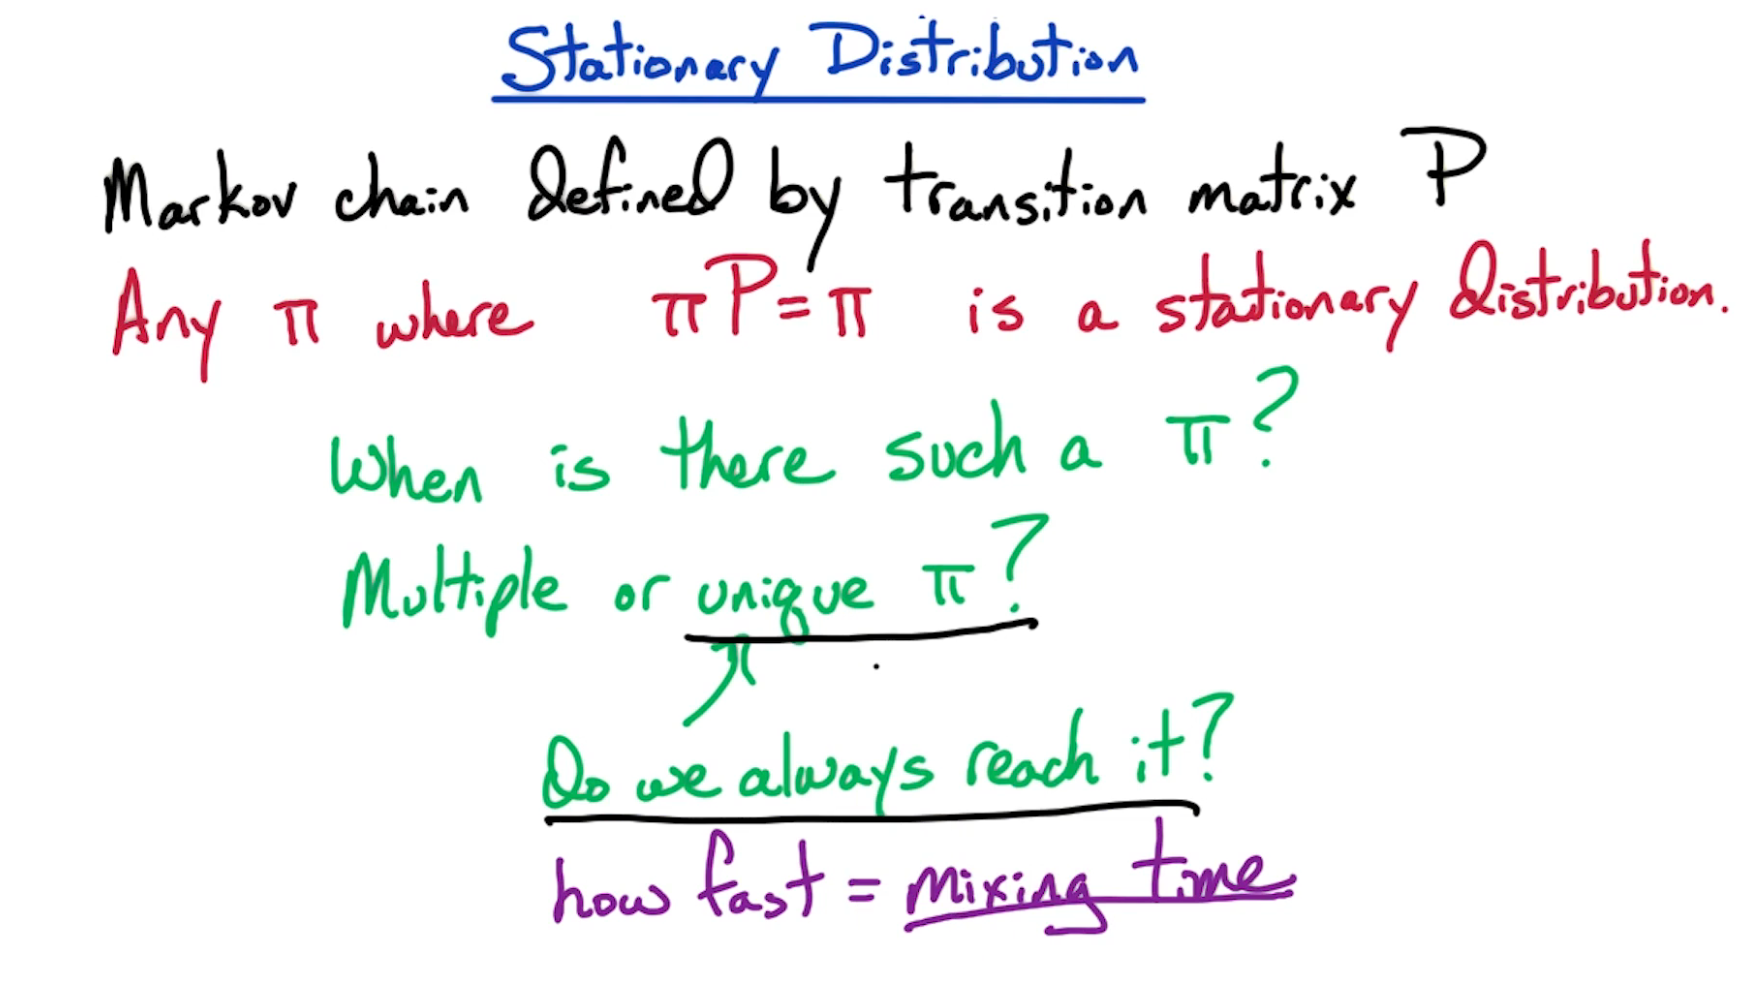 Stationary Distribution
Markov chain defined by transition matrix P
Any π where πP=π is a stationary distribution.
When is there such a π?
Multiple or unique π?
Do we always reach it?
how fast = mixing time